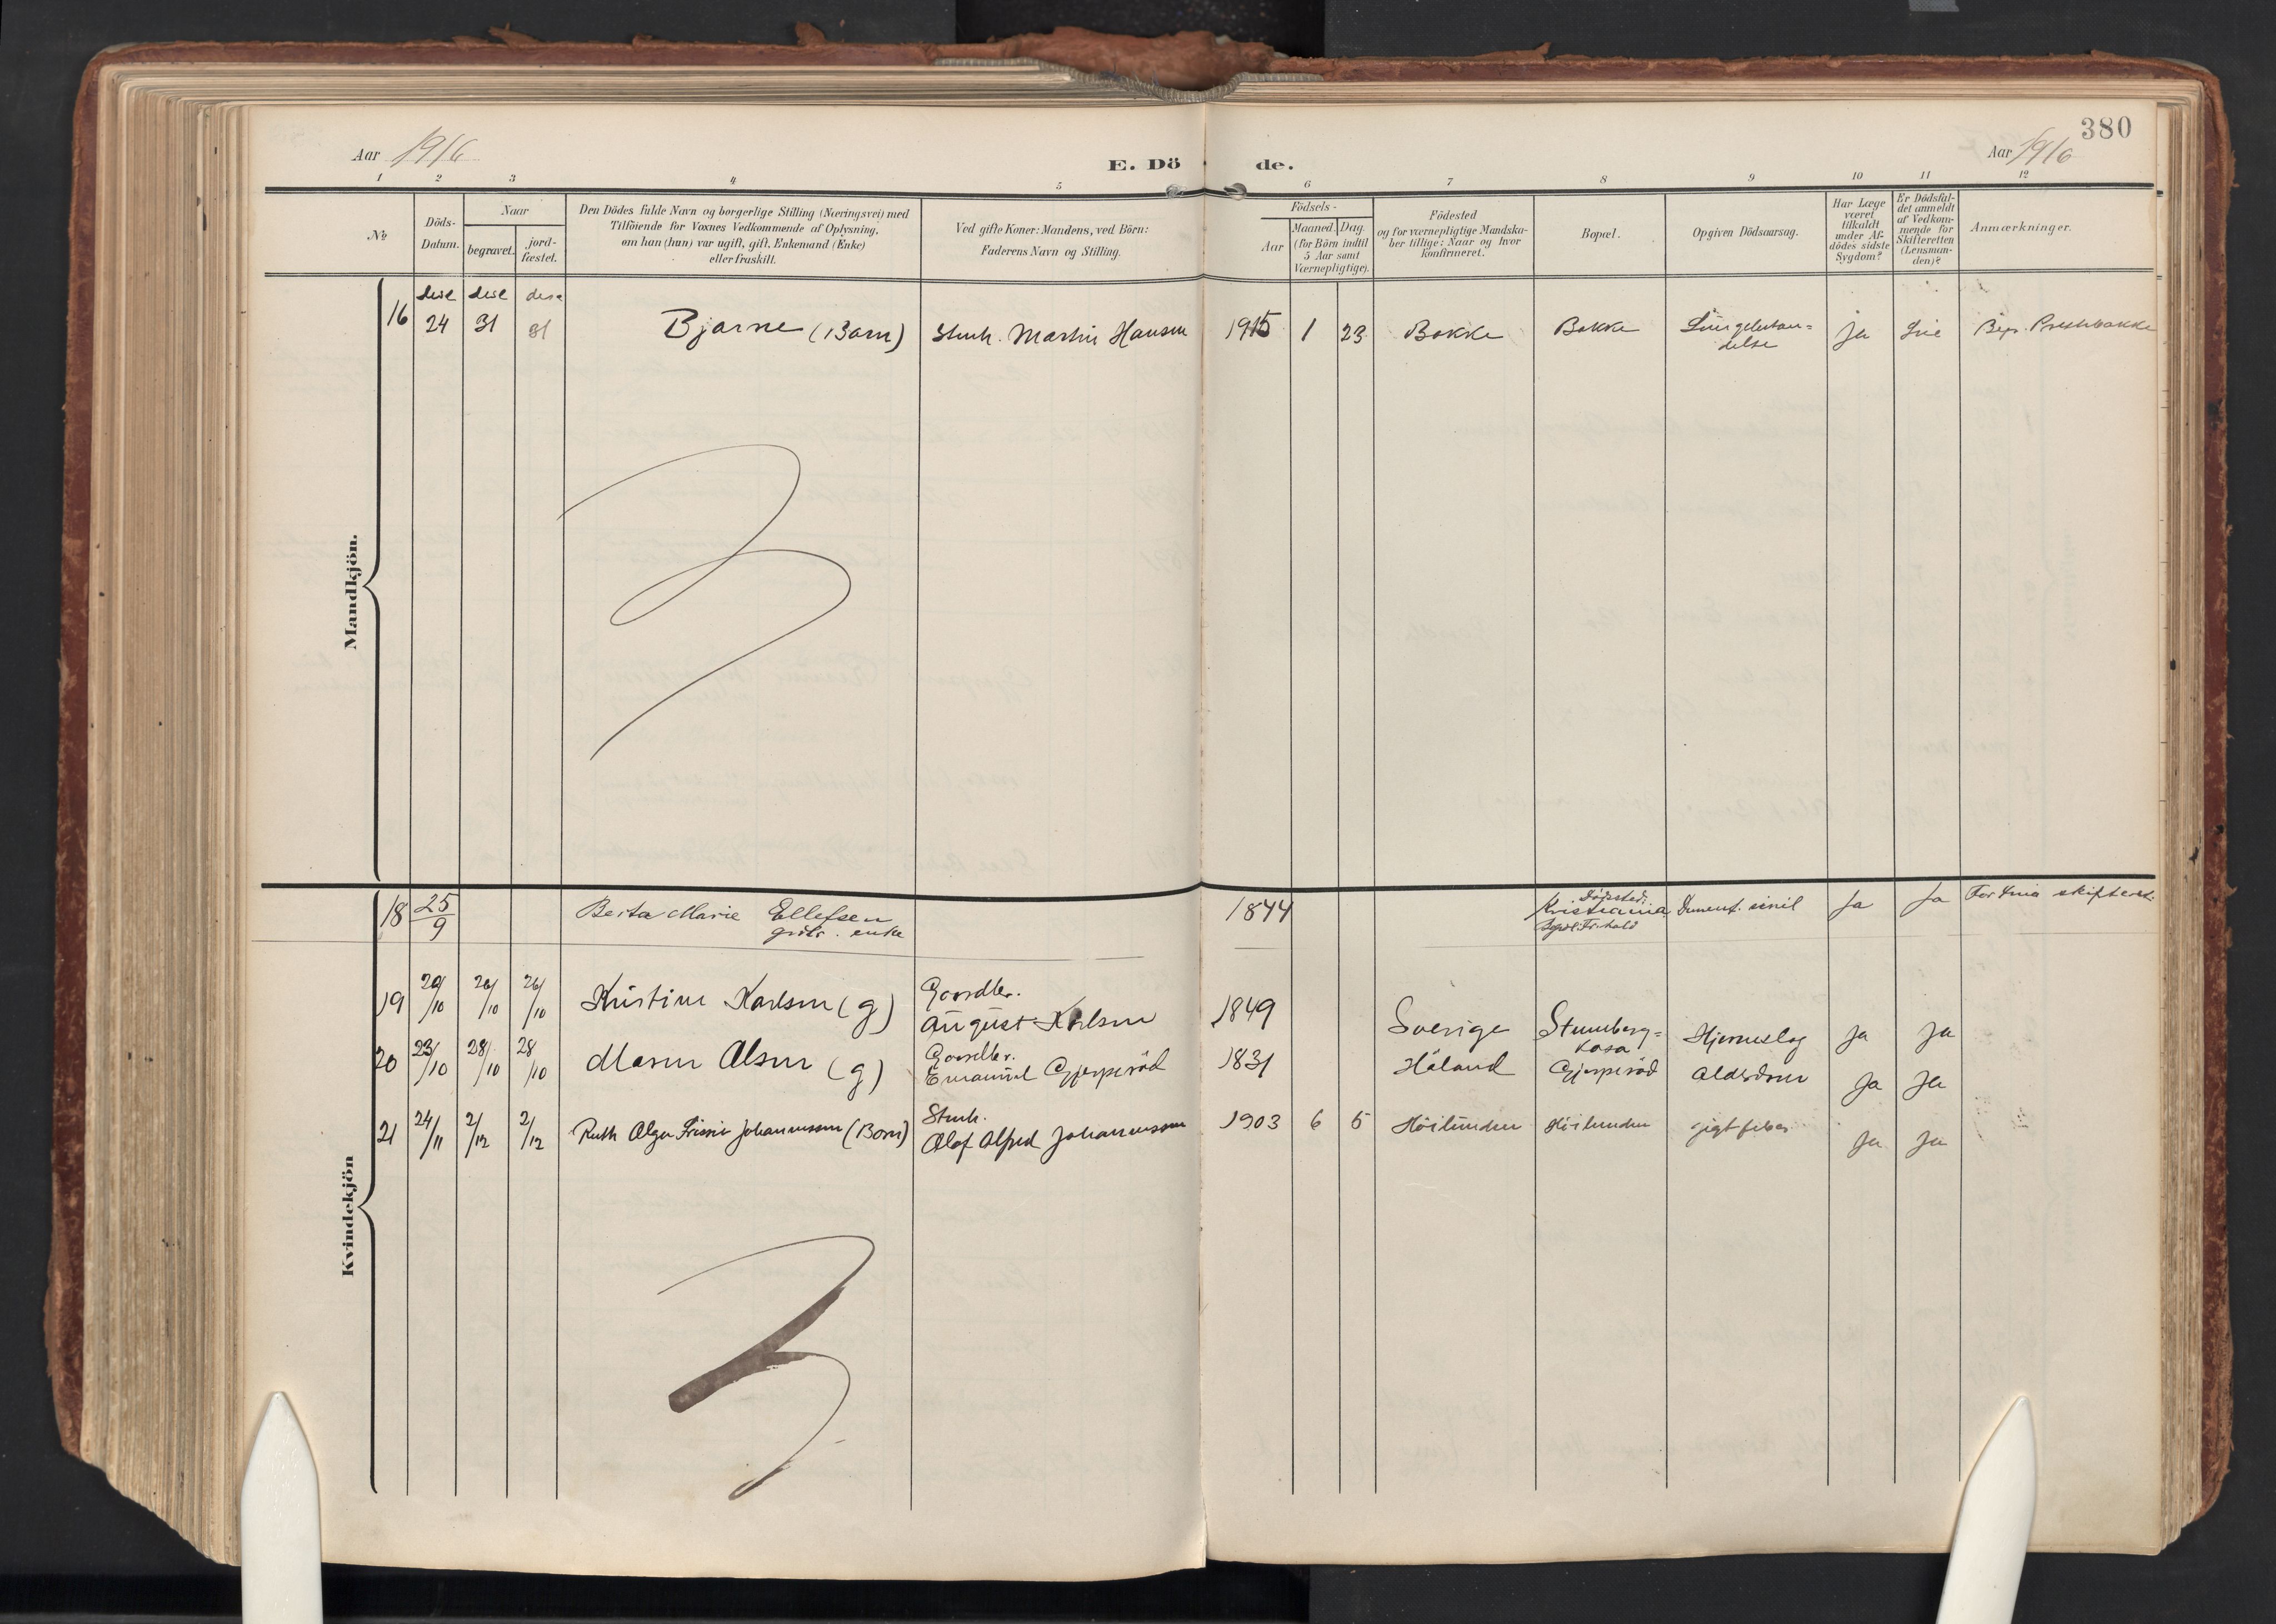 380
Aar 1916
E. Dö de.
Aar 1916
1 2 3 4 5 6 7 8 9 10 11 12
№
Döds-
Datum.
Naar
begravet.
jord-
fæstet.
Den Dödes fulde Navn og borgerlige Stilling (Næringsvei) med
Tilföiende for Voxnes Vedkommende af Oplysning,
om han (hun) var ugift, gift, Enkemand (Enke)
eller fraskilt.
Ved gifte Koner: Mandens, ved Börn:
Faderens Navn og Stilling.
Födsels-
Aar
Maaned. Dag.
(for Börn indtil
5 Aar samt
Værnepligtige).
Födested
og for værnepligtige Mandska-
ber tillige: Naar og hvor
konfirmeret.
Bopæl.
Opgiven Dödsaarsag.
Har Læge
været
tilkaldt
under Af-
dödes sidste
Sygdom?
Er Dödsfal-
det anmeldt
af Vedkom-
mende for
Skifteretten
(Lensman-
den)?
Anmærkninger.
Mandkjön.
16 24 31 31 Bjarne (Barn) Martin Hansen 1915 1 23 Bakke Bakke ja
Prestebakke
Kvindekjön
18 25/9 Berta Marie Ellefsen 1844 Kristiania senil Ja Ja skifteret.
enke
19 20/10 26/10 26/10 Kristine Karlsen (g) Gaardbr.
August Karlsen 1849 Sverige Hjerneslag ja ja
20 23/10 28/10 28/10 Maren Olsen (g) Gaardbr.
Emanuel Gjerperöd 1831 Håland Gjerperöd ja ja
21 24/11 2/12 2/12 Ruth Olga Johannessen (Barn)
Olaf Alfred Johannessen 1903 6 5 Höilunden Höilunden gigtfeber ja ja